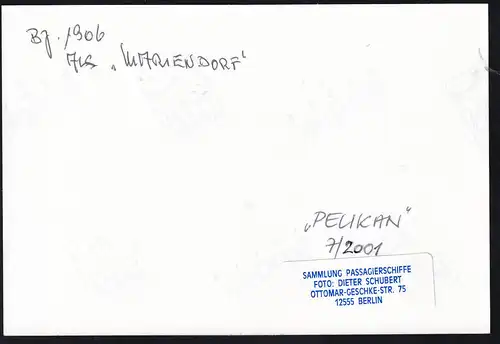 Bj. 1906
Als „MARIENDORF“
„PELIKAN“
7/2001
SAMMLUNG PASSAGIERSCHIFFE
FOTO: DIETER SCHUBERT
OTTOMAR-GESCHKE-STR. 75
12555 BERLIN